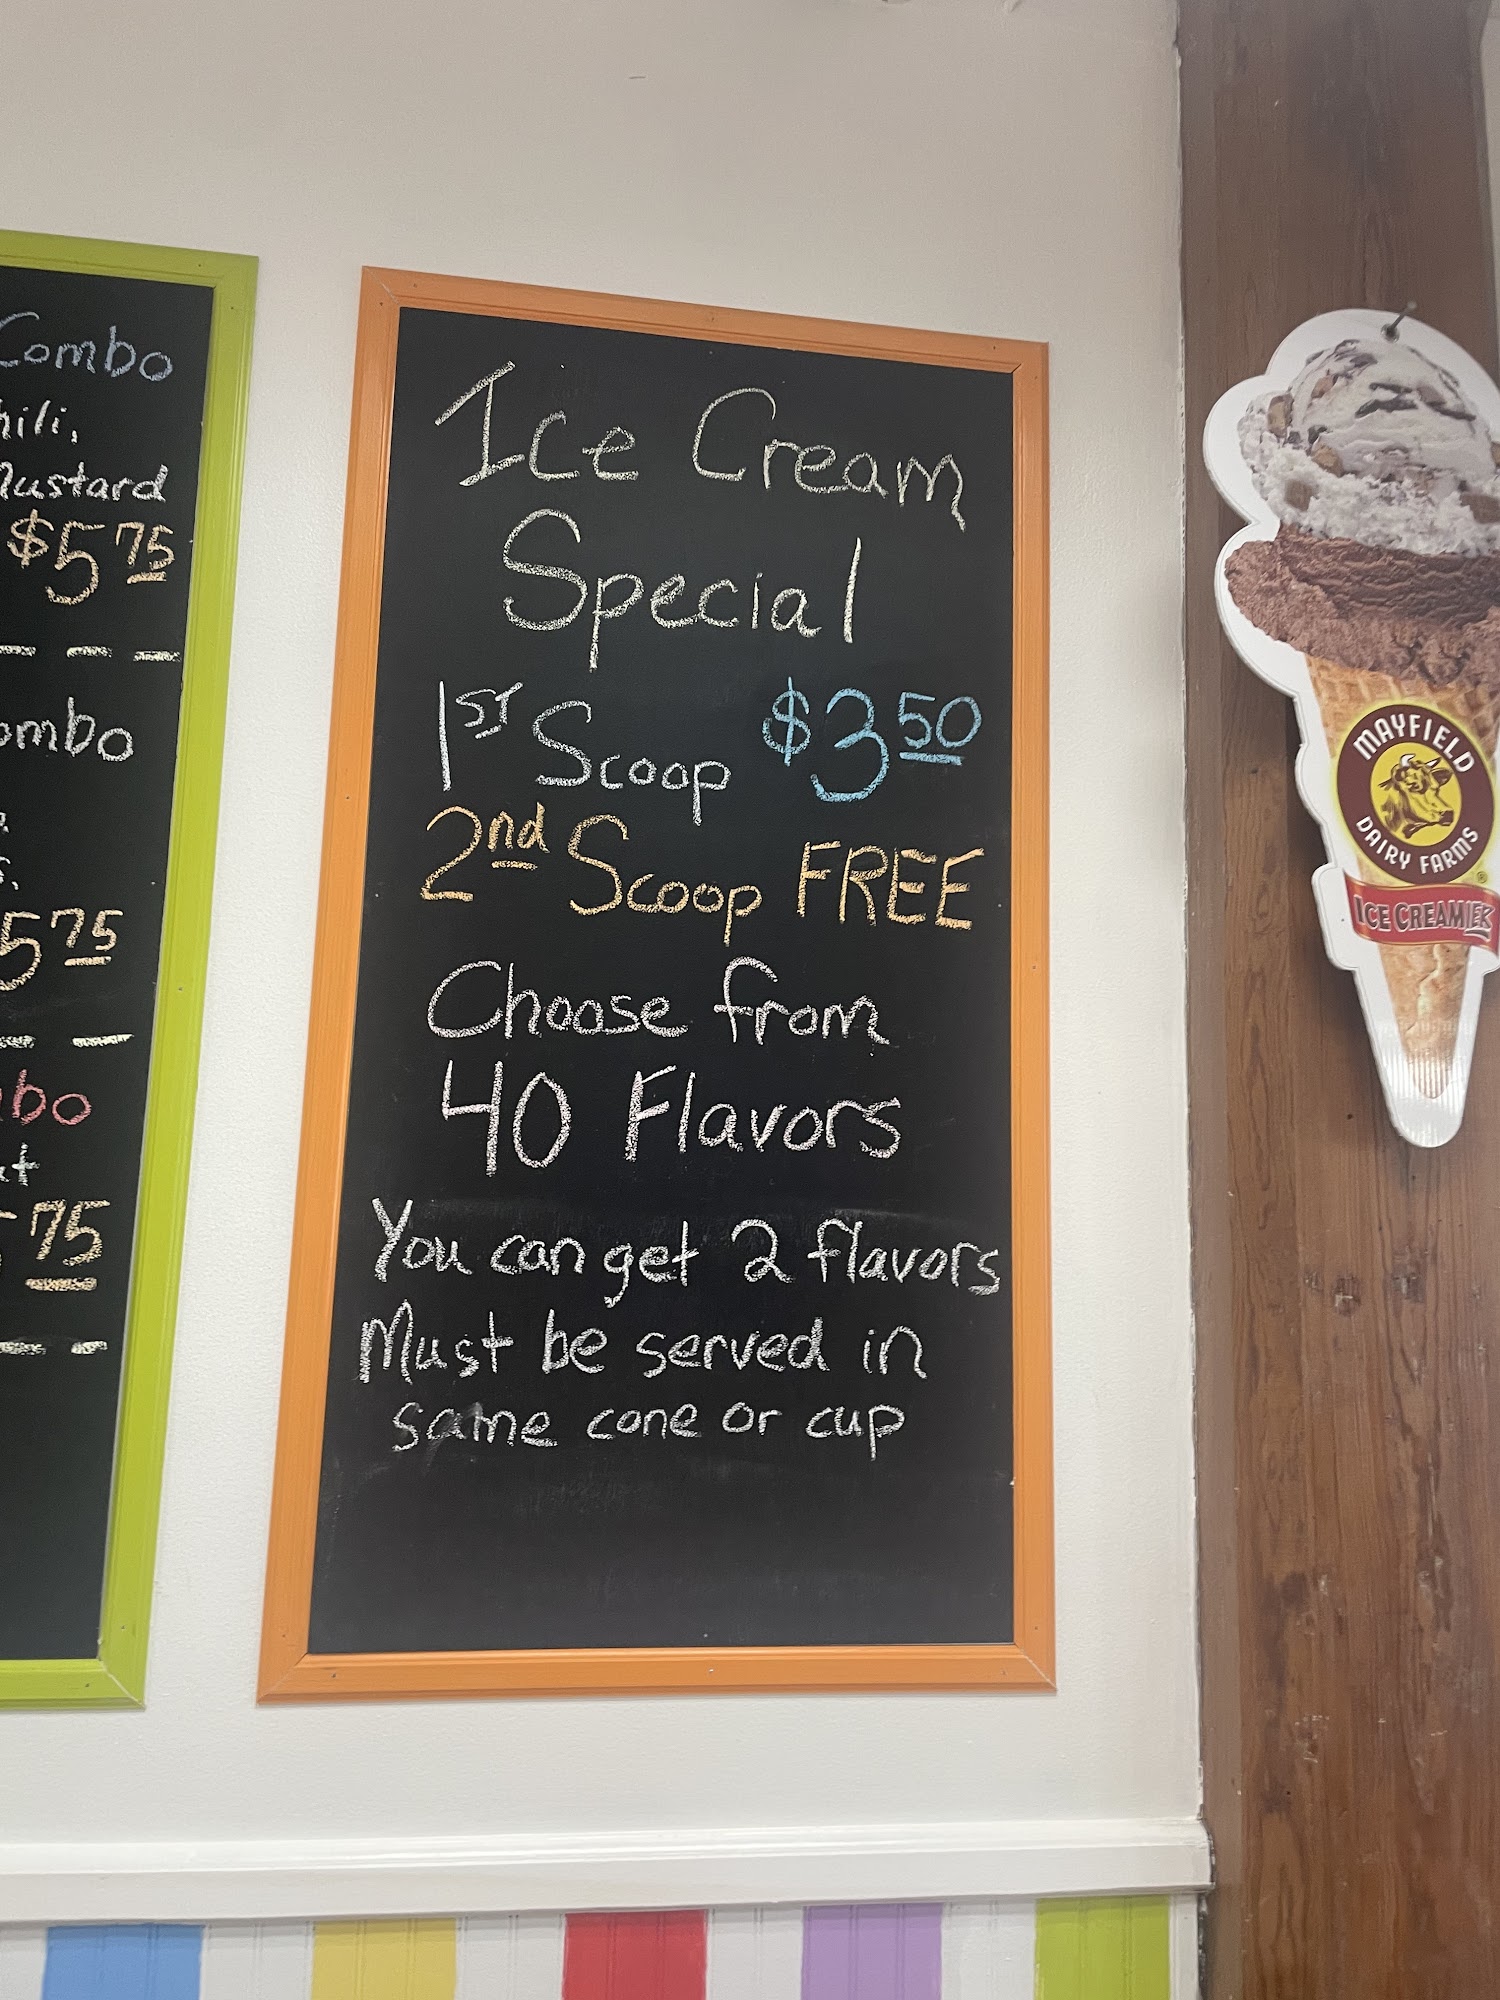 Combo
Mustard
$5 75
75
75
Ice Cream
Special
1ST Scoop $3 50
2nd Scoop FREE
Choose from
40 Flavors
You can get 2 flavors
Must be served in
same cone or cup
MAYFIELD
DAIRY FARMS
ICE CREAM